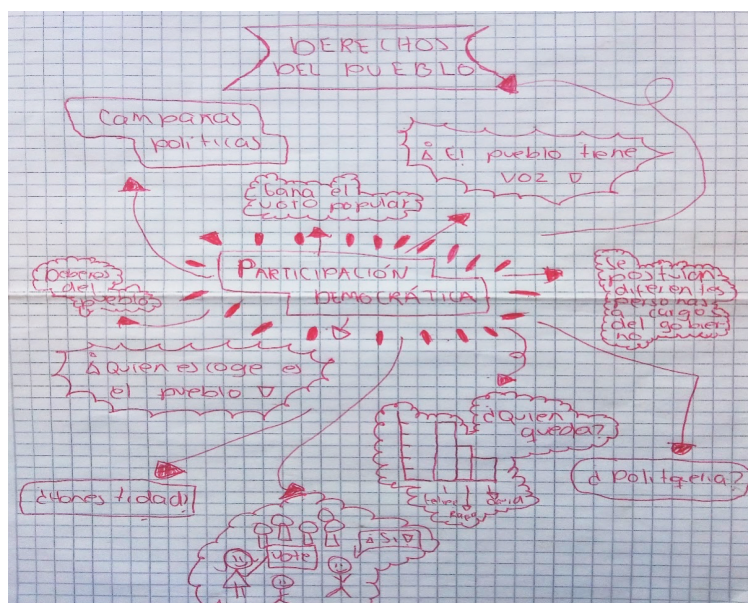 DERECHOS
DEL PUEBLO
Campañas
políticas
¡ El pueblo tiene
voz !
Gana el
voto popular
PARTICIPACIÓN
DEMOCRÁTICA
Deberes
del
pueblo
Se
postulan
diferentes
personas
a cargos
del gobier
no
¡Quien escoge es
el pueblo !
¿Quien
queda?
¿Honestidad?
¿ Politqueria?
Vote
¡ SI !